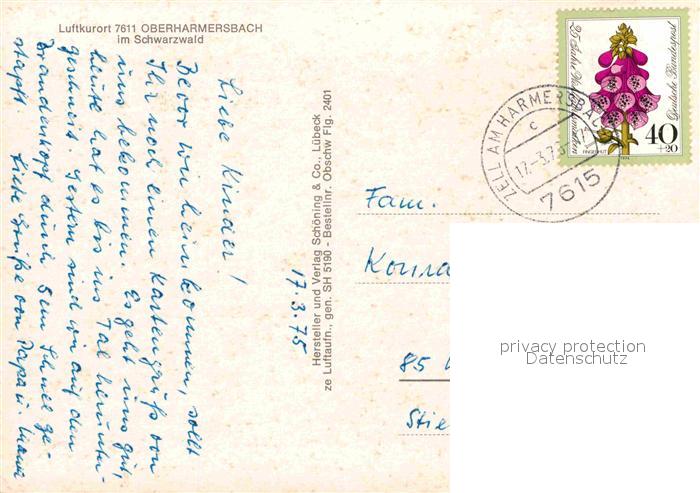 Luftkurort 7611 OBERHARMERSBACH
im Schwarzwald
Liebe Kinder!
Bevor wir heimkommen, sollt
Ihr noch einen Kartengruß von
uns bekommen. Es geht uns gut,
heute hat es bis ins Tal herunter-
geschneit. Gestern sind wir auf den
Brandenkopf durch 5 cm Schnee ge-
stapft. Liebe Grüße von Papa u. Mama
17.3.75
Hersteller und Verlag Schöning & Co., Lübeck
ze Luftaufn., gen. SH 5190 - Bestellnr. Obschw Flg. 2401
ZELL AM HARMERSBACH
c
17.-3.75
7615
25 Jahre
Deutsche Bundespost
FINGERHUT
1974
40
+20
Fam.
Konra
85
Stie
privacy protection
Datenschutz